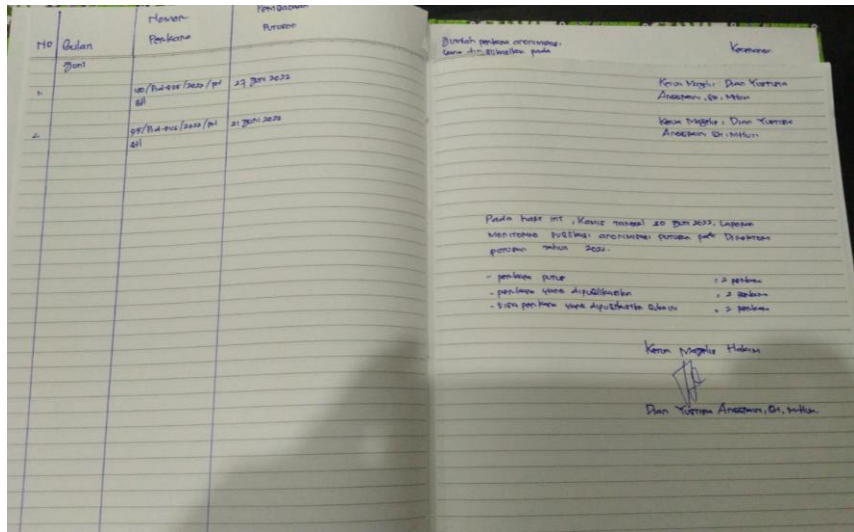 No Bulan Nomor Perkara Pembacaan Putusan
Juni
1. /2022/PN 27 Juni 2022
2. /2022/PN 21 Juni 2022
Jumlah perkara anonimasi
yang dipublikasikan pada
Ketua Majelis : Dian Yustisia
Anggraini, SH, M.Hum
Ketua Majelis : Dian Yustisia
Anggraini SH. M.Hum
Pada hari ini, Kamis tanggal 30 Juni 2022, Laporan
Monitoring publikasi anonimasi putusan pada Direktori
putusan tahun 2022.
- perkara putus = 2 perkara
- perkara yang dipublikasikan = 2 perkara
- sisa perkara yang dipublikasikan = 2 perkara
Ketua Majelis Hakim
Dian Yustisia Anggraini, SH, M.Hum